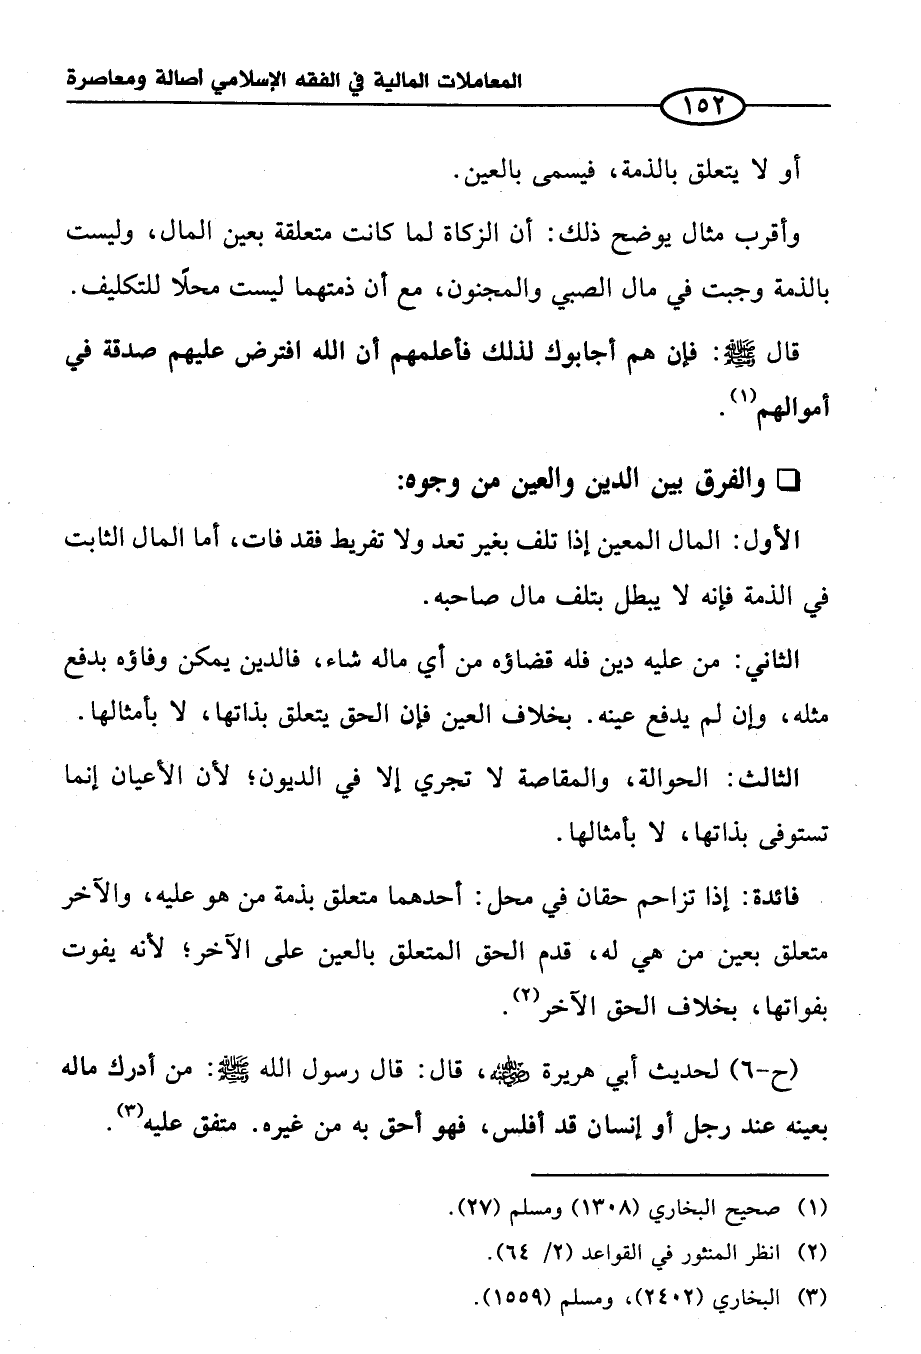 المعاملات المالية في الفقه الإسلامي أصالة ومعاصرة
١٥٢
أو لا يتعلق بالذمة، فيسمى بالعين.
وأقرب مثال يوضح ذلك: أن الزكاة لما كانت متعلقة بعين المال، وليست
بالذمة وجبت في مال الصبي والمجنون، مع أن ذمتهما ليست محلًا للتكليف.
قال ﷺ: فإن هم أجابوك لذلك فأعلمهم أن الله افترض عليهم صدقة في
أموالهم(١).
❑ والفرق بين الدين والعين من وجوه:
الأول: المال المعين إذا تلف بغير تعد ولا تفريط فقد فات، أما المال الثابت
في الذمة فإنه لا يبطل بتلف مال صاحبه.
الثاني: من عليه دين فله قضاؤه من أي ماله شاء، فالدين يمكن وفاؤه بدفع
مثله، وإن لم يدفع عينه. بخلاف العين فإن الحق يتعلق بذاتها، لا بأمثالها.
الثالث: الحوالة، والمقاصة لا تجري إلا في الديون؛ لأن الأعيان إنما
تستوفى بذاتها، لا بأمثالها.
فائدة: إذا تزاحم حقان في محل: أحدهما متعلق بذمة من هو عليه، والآخر
متعلق بعين من هي له، قدم الحق المتعلق بالعين على الآخر؛ لأنه يفوت
بفواتها، بخلاف الحق الآخر(٢).
(ح-٦) لحديث أبي هريرة رضي الله عنه، قال: قال رسول الله ﷺ: من أدرك ماله
بعينه عند رجل أو إنسان قد أفلس، فهو أحق به من غيره. متفق عليه(٣).
(١) صحيح البخاري (١٣٠٨) ومسلم (٢٧).
(٢) انظر المنثور في القواعد (٢/ ٦٤).
(٣) البخاري (٢٤٠٢)، ومسلم (١٥٥٩).